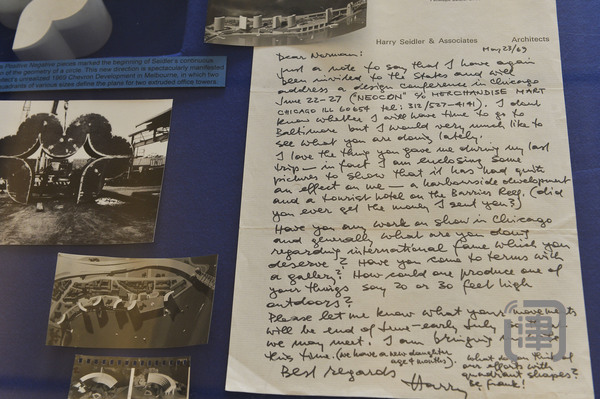 Positive Negative planes marked the beginning of Seidler's continuous
of the geometry of a circle. This new direction is spectacularly manifested
unrealized 1969 Chevron Development in Melbourne, in which two
quadrants of various sizes define the plans for two extruded office towers.
Harry Seidler & Associates Architects
May 23/69
Dear Norman:
just a note to say that I have again
been invited to the States and will
address a design conference in Chicago
June 22-27 ("NEOCON" c/o MERCHANDISE MART
CHICAGO ILL 60654 tel: 312/527-4141). I dont
know whether I will have time to go to
Baltimore but I would very much like to
see what you are doing lately.
I love the thing you gave me during my last
trip — in fact I am enclosing some
pictures to show that it has had quite
an effect on me — a harbourside development
and a tourist hotel on the Barrier Reef. (did
you ever get the money I sent you?)
Have you any work on show in Chicago
and generally what are you doing
regarding international fame which you
deserve? Have you come to terms with
a gallery? How could one produce one of
your things say 20 or 30 feet high
outdoors?
Please let me know what your movements
will be end of June-early July so
we may meet. I am bringing
this time. (we have a new daughter
age 4 months).
What do you think of
our efforts with
quadrant shapes?
be frank!
Best regards
Harry